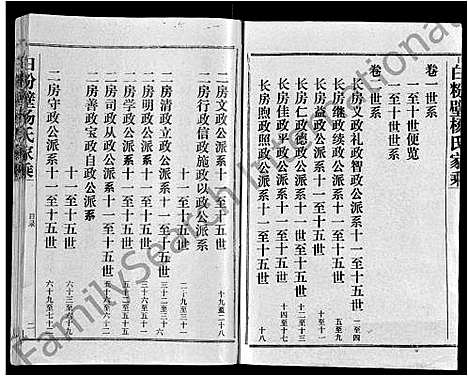 白粉壁杨氏家乘
卷一世系
一至十世便览
一至十世系
卷二世系
长房义政礼政智政公派系十一至十五世 一至四
长房继政续政公派系十一至十五世 五至九
长房益政公派系十一至十五世 十至十一
长房仁政德政公派系十一至十五世 十二至十三
长房佳政公派系十一至十五世 十四至十七
长房煦政照政公派系十一至十五世 十八
二房文政公派系十一至十五世 十九至二十八
二房行政信政施政以政公派系
十一至十五世 二十九至三十一
二房清政立政公派系十一至十五世 三十二至三十六
二房明政公派系十一至十五世
二房学政公派系十一至十五世
二房自政公派系十一至十五世
二房善政宝政自政公派系
十一至十五世 六十三至六十八
二房守政公派系十一至十五世 六十九至七十一
目录
二
白粉壁杨氏家乘
FamilySearch International